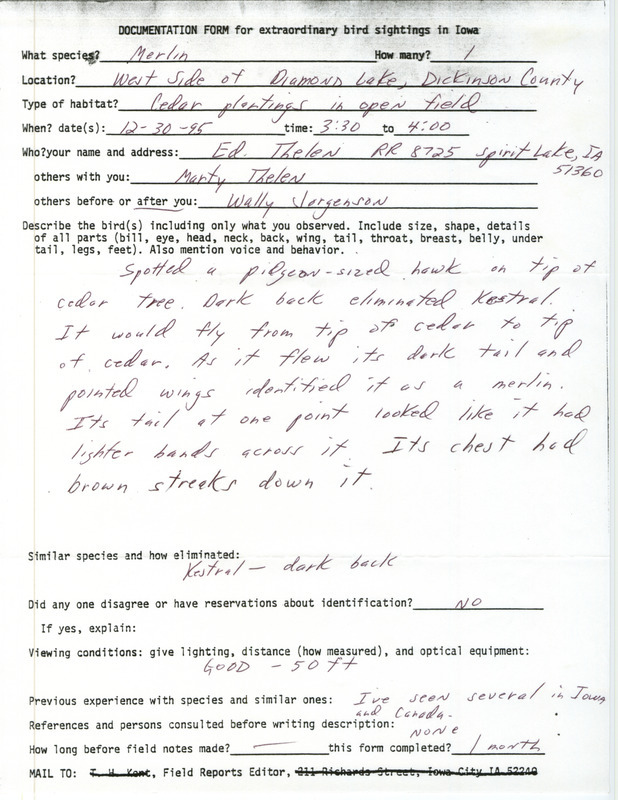 DOCUMENTATION FORM for extraordinary bird sightings in Iowa
What species? Merlin How many? 1
Location? West Side of Diamond Lake, Dickinson County
Type of habitat? Cedar plantings in open field
When? date(s): 12-30-95 time: 3:30 to 4:00
Who?your name and address: Ed. Thelen RR 8725 Spirit Lake, IA
51360
others with you: Marty Thelen
others before or after you: Wally Jorgenson
Describe the bird(s) including only what you observed. Include size, shape, details
of all parts (bill, eye, head, neck, back, wing, tail, throat, breast, belly, under
tail, legs, feet). Also mention voice and behavior.
Spotted a pidgeon-sized hawk on tip of
cedar tree. Dark back eliminated Kestral.
It would fly from tip of cedar to tip
of cedar. As it flew its dark tail and
pointed wings identified it as a merlin.
Its tail at one point looked like it had
lighter bands across it. Its chest had
brown streaks down it.
Similar species and how eliminated:
Kestral — dark back
Did any one disagree or have reservations about identification? NO
If yes, explain:
Viewing conditions: give lighting, distance (how measured), and optical equipment:
GOOD - 50 ft
Previous experience with species and similar ones: I've seen several in Iowa
and Canada.
References and persons consulted before writing description:
NONE
How long before field notes made? — this form completed? 1 month
MAIL TO: T. H. Kent, Field Reports Editor, 211 Richards Street, Iowa City IA 52240